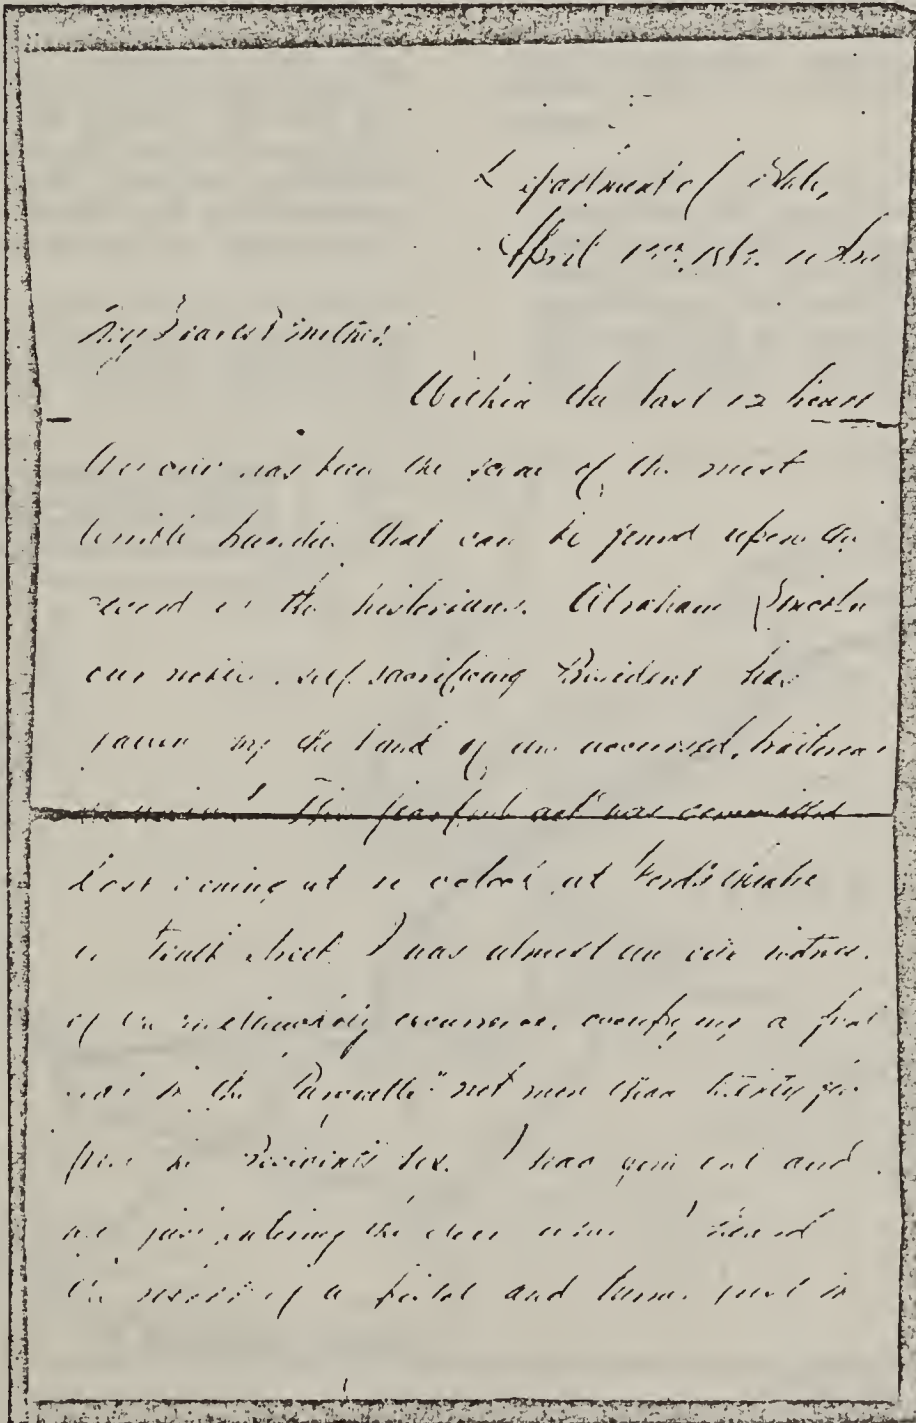 Department of State,
April 15th, 1865. 10 Am
My Dearest Mother.
Within the last 12 hours
has been the scene of the most
terrible that can be found upon the
record of the historians. Abraham Lincoln
our noble, self sacrificing President has
fallen by the hand of an accursed, traitorous
This fearful act was committed
Last evening at 10 oclock at Ford's Theatre
on Tenth Street. I was almost an eye witness
of the melancholy occurrence, occupying a front
seat in the "Parquette" not more than twenty five
from the President's box. I had gone out and
was just entering the door when I heard
the report of a pistol and turned just in